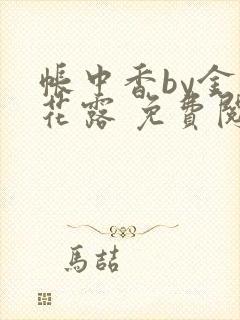 帳中香by金
花露 免費閱
馬喆